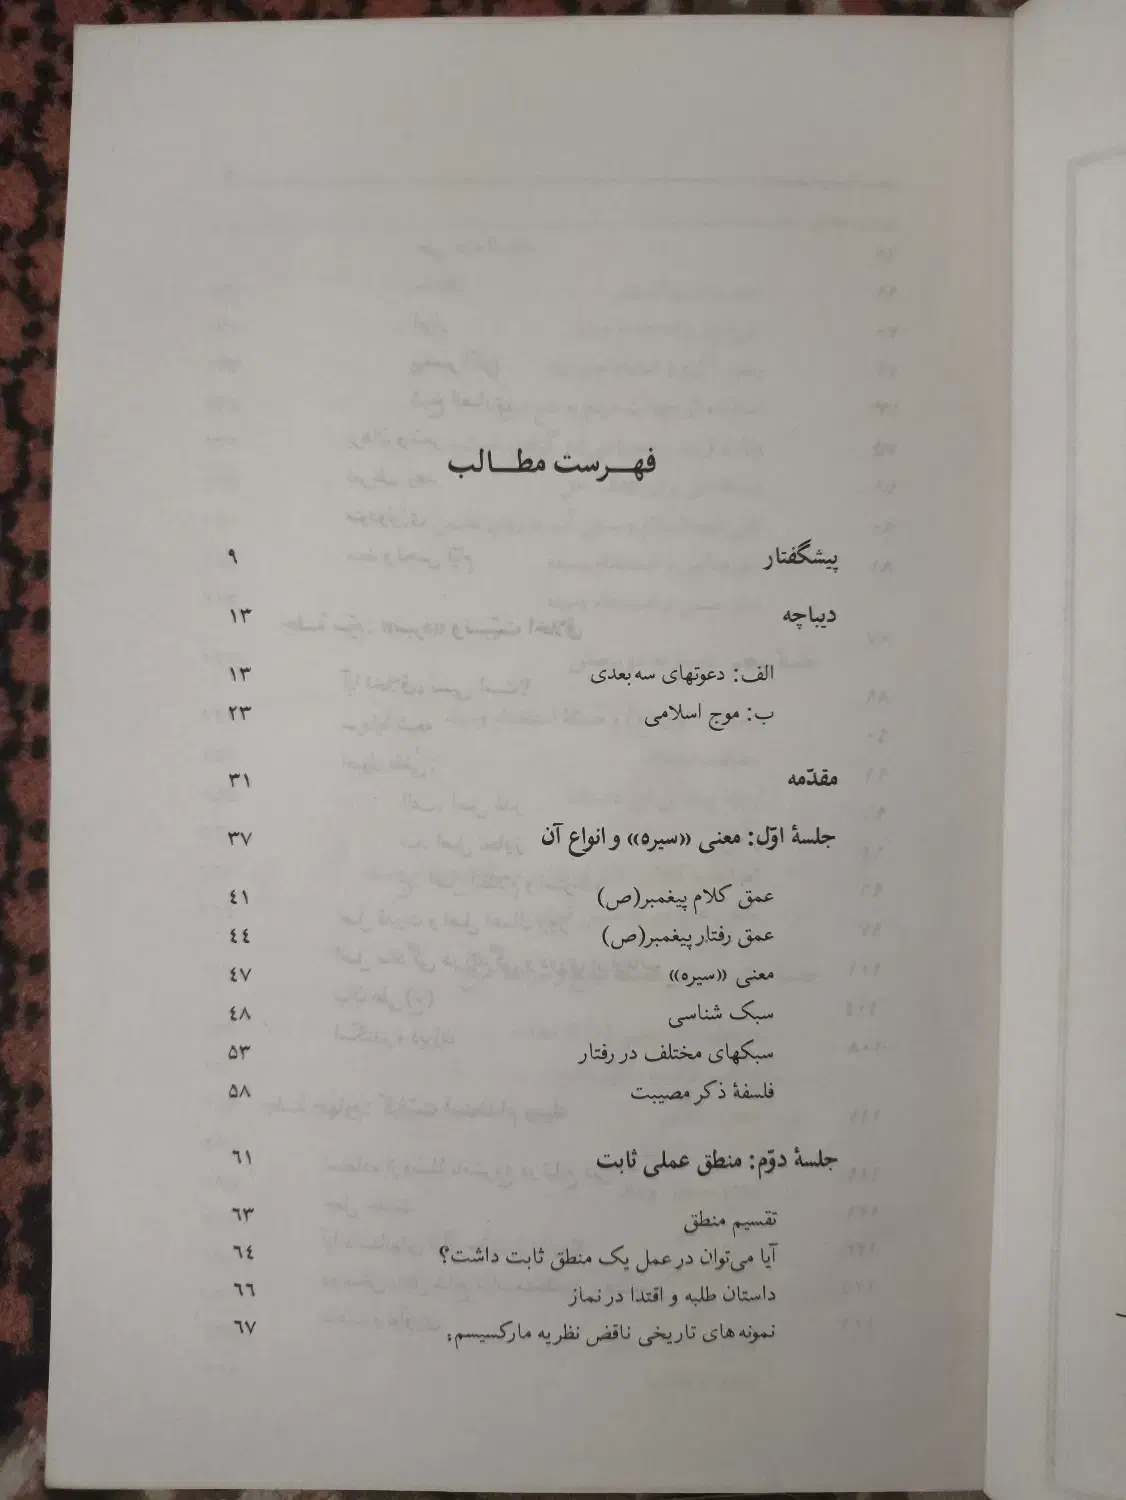 فهـرست مطـالب
پیشگفتار ۹
دیباچه ۱۳
الف: دعوتهای سه‌بعدی ۱۳
ب: موج اسلامی ۲۳
مقدّمه ۳۱
جلسهٔ اوّل: معنی «سیره» و انواع آن ۳۷
عمق کلام پیغمبر(ص) ٤۱
عمق رفتار پیغمبر(ص) ٤٤
معنی «سیره» ٤۷
سبک شناسی ٤۸
سبکهای مختلف در رفتار ۵۳
فلسفهٔ ذکر مصیبت ۵۸
جلسهٔ دوّم: منطق عملی ثابت ٦۱
تقسیم منطق ٦۳
آیا می‌توان در عمل یک منطق ثابت داشت؟ ٦٤
داستان طلبه و اقتدا در نماز ٦٦
نمونه‌های تاریخی ناقض نظریه مارکسیسم: ٦۷